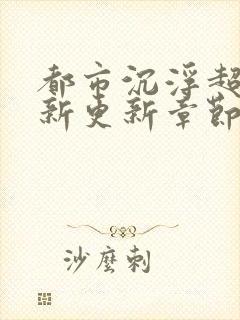 都市沉浮超
新更新章節
沙麼刺